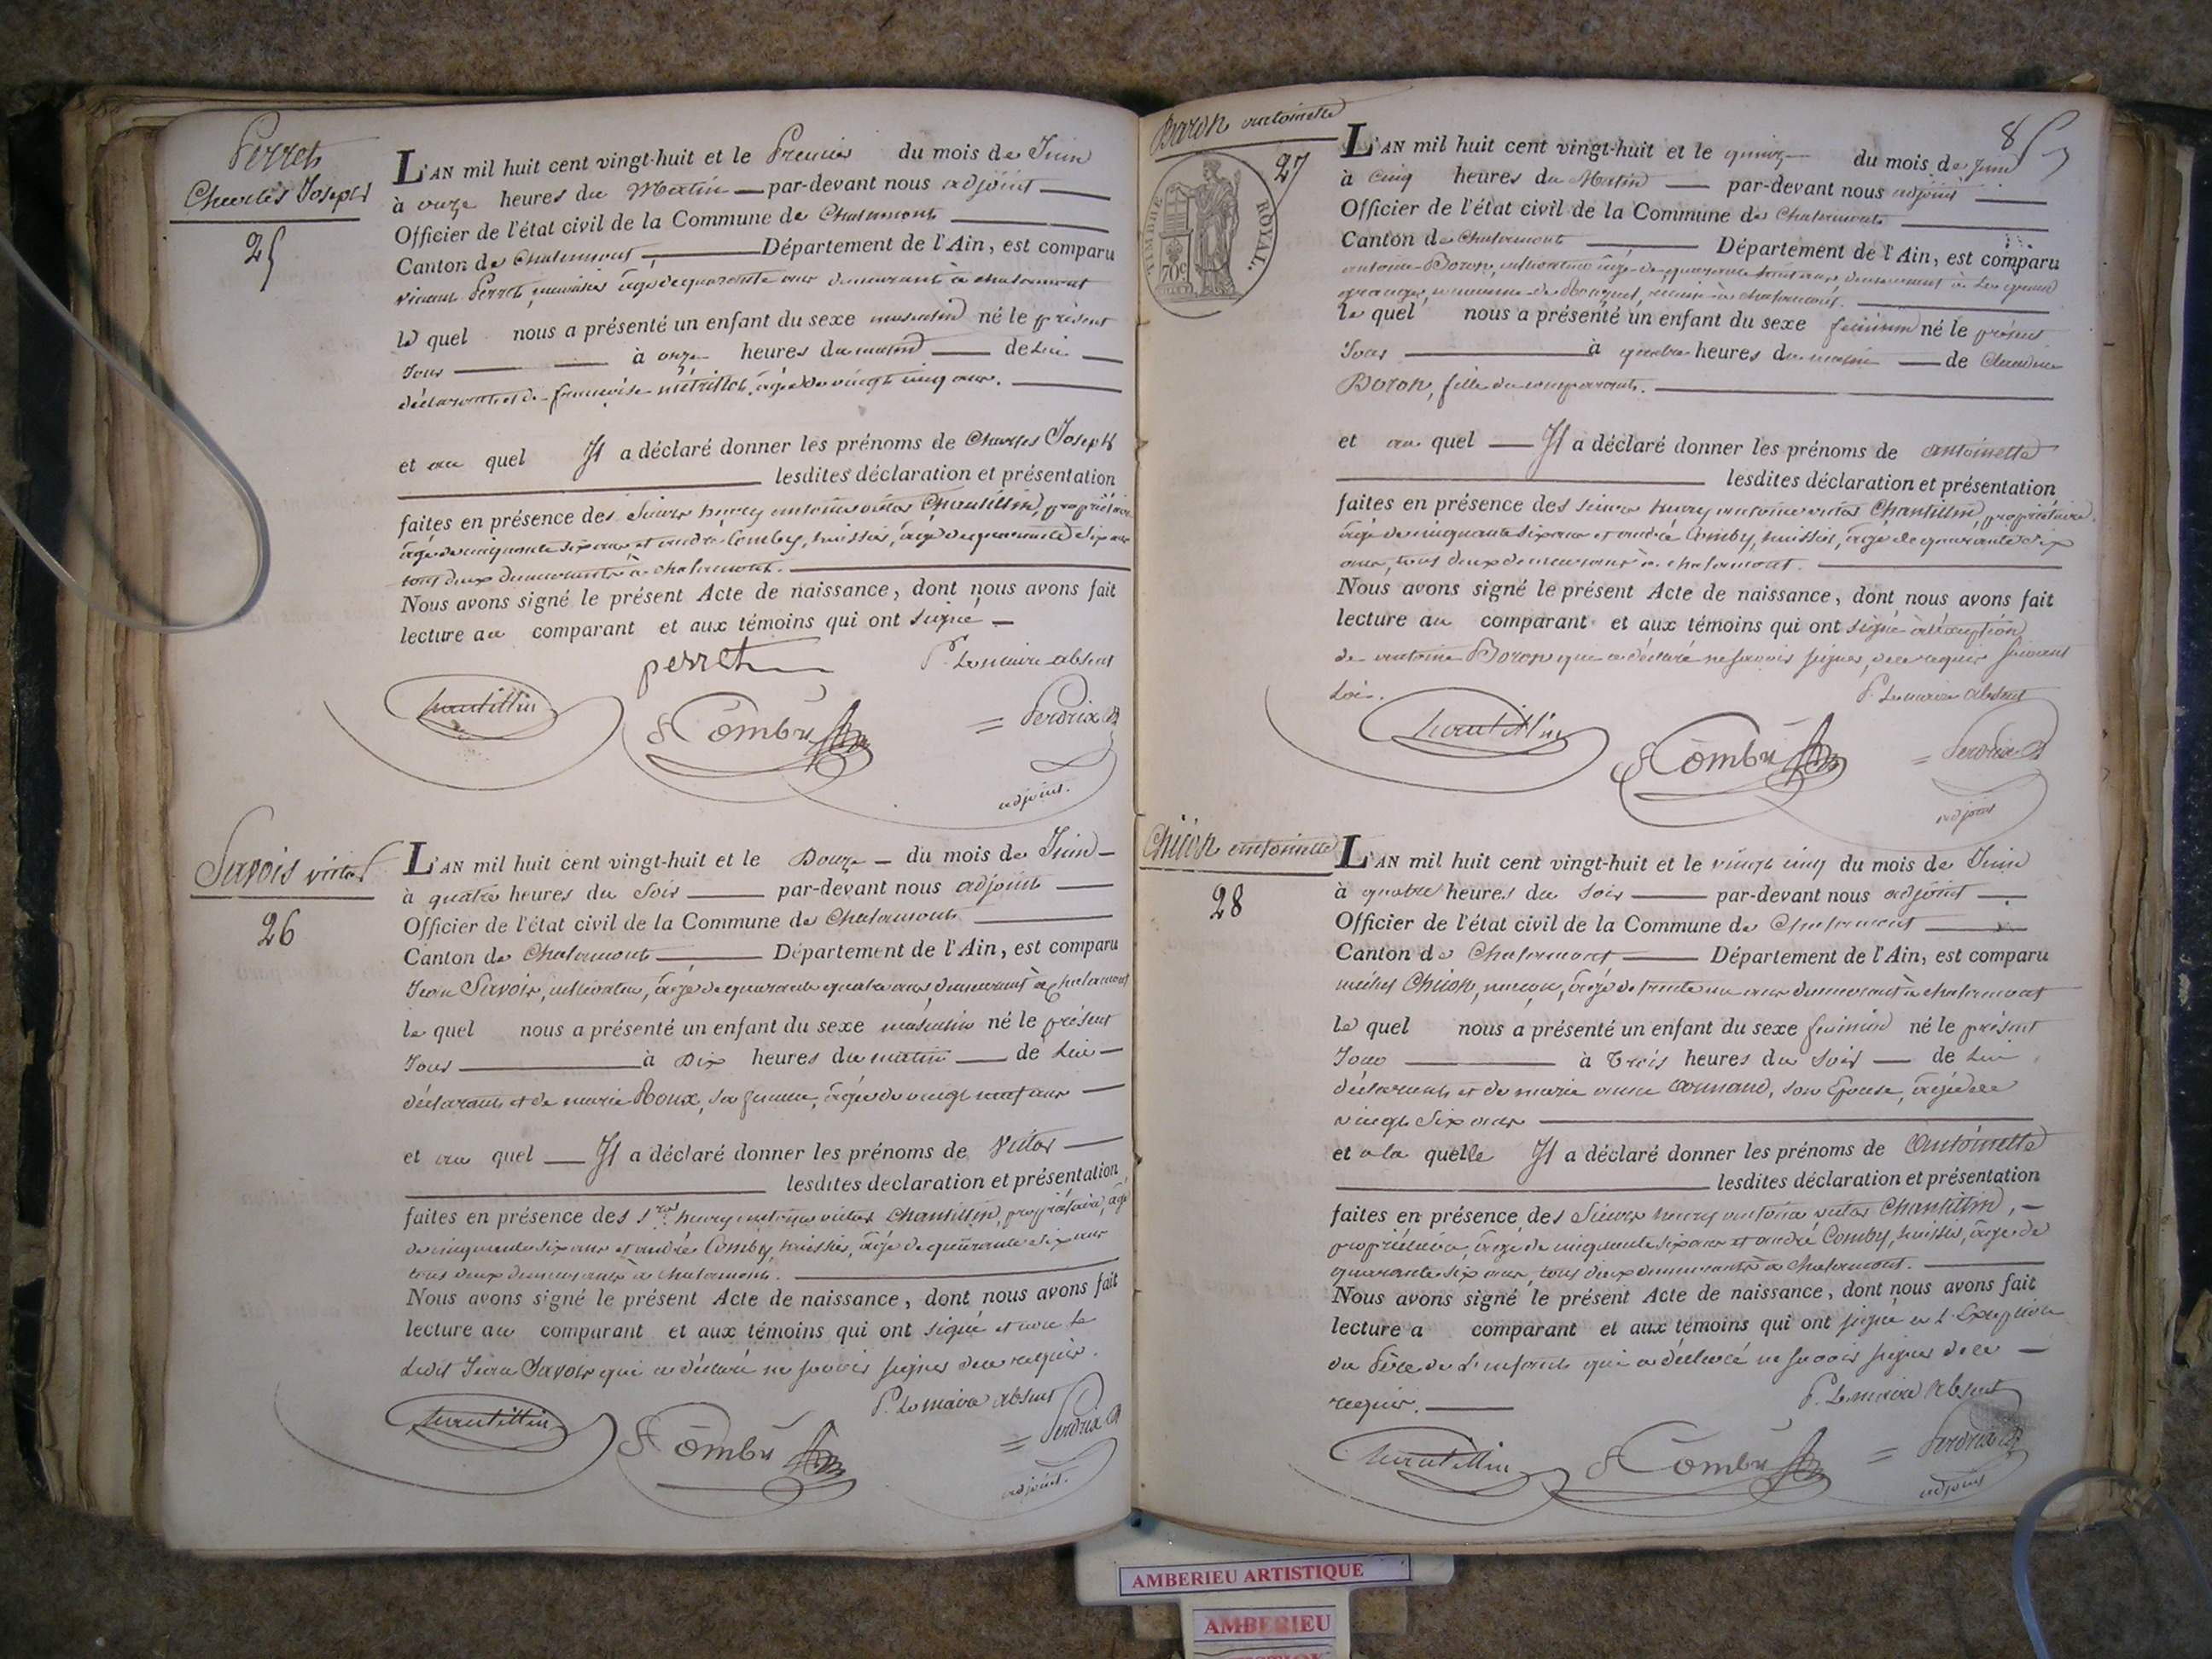 Perret
Charles Joseph
25
L'AN mil huit cent vingt-huit et le Premier du mois de Juin
à onze heures du Matin par-devant nous adjoint
Officier de l'état civil de la Commune de Chalamont
Canton de Chalamont Département de l'Ain, est comparu
Perret, âgé de quarante ans demeurant à chalamont
le quel nous a présenté un enfant du sexe masculin né le présent
Jour à onze heures du matin de Lui
déclarant et de françoise âgée de vingt cinq ans.
et au quel Il a déclaré donner les prénoms de Charles Joseph
lesdites déclaration et présentation
faites en présence des Sieurs henry antoine victor Chantillin, propriétaire
âgé de cinquante six ans et andré Comby, huissier, âgé de quarante six ans
tous deux demeurants à chalamont.
Nous avons signé le présent Acte de naissance, dont nous avons fait
lecture au comparant et aux témoins qui ont signé
perret P. Le maire absent
Chantillin Comby = Perdrix
adjoint.
Savois victor
26
L'AN mil huit cent vingt-huit et le Douze du mois de Juin
à quatre heures du Soir par-devant nous adjoint
Officier de l'état civil de la Commune de Chalamont
Canton de Chalamont Département de l'Ain, est comparu
Jean Savois, cultivateur, âgé de quarante quatre ans, demeurant à Chalamont
le quel nous a présenté un enfant du sexe masculin né le présent
Jour à Dix heures du matin de Lui
déclarant et de marie Roux, sa femme, âgée de vingt neuf ans
et au quel Il a déclaré donner les prénoms de Victor
lesdites declaration et présentation
faites en présence des Srs henry antoine victor Chantillin, propriétaire, âgé
de cinquante six ans et andré Comby, huissier, âgé de quarante six ans
tous deux demeurants à Chalamont.
Nous avons signé le présent Acte de naissance, dont nous avons fait
lecture au comparant et aux témoins qui ont signé et non le
dit Jean Savois qui a déclaré ne savoir signer de ce requis.
P. Le maire absent
Chantillin Comby = Perdrix
adjoint.
Boron antoinette
27
TIMBRE ROYAL.
70c
85
L'AN mil huit cent vingt-huit et le quinze du mois de Juin
à Cinq heures du Matin par-devant nous adjoint
Officier de l'état civil de la Commune de Chalamont
Canton de Chalamont Département de l'Ain, est comparu
antoine Boron, cultivateur âgé de quarante huit ans, demeurant à
commune de à chalamont.
le quel nous a présenté un enfant du sexe féminin né le présent
Jour à quatre heures du matin de Claudine
Boron, fille du comparant.
et au quel Il a déclaré donner les prénoms de antoinette
lesdites déclaration et présentation
faites en présence des Sieurs henry antoine victor Chantillin, propriétaire,
âgé de cinquante six ans et andré Comby, huissier, âgé de quarante six
ans, tous deux demeurants à chalamont.
Nous avons signé le présent Acte de naissance, dont nous avons fait
lecture au comparant et aux témoins qui ont signé à l'exception
de antoine Boron qui a déclaré ne savoir signer, de ce requis suivant
Loi. P. Le maire absent
Chantillin Comby = Perdrix
adjoint
Chicon antoinette
28
L'AN mil huit cent vingt-huit et le vingt cinq du mois de Juin
à quatre heures du Soir par-devant nous adjoint
Officier de l'état civil de la Commune de Chalamont
Canton de Chalamont Département de l'Ain, est comparu
michel Chicon, maçon, âgé de trente un ans demeurant à chalamont
le quel nous a présenté un enfant du sexe féminin né le présent
Jour à Trois heures du Soir de Lui
déclarant et de marie anne son Epouse, âgée de
vingt six ans
et a la quelle Il a déclaré donner les prénoms de Antoinette
lesdites déclaration et présentation
faites en présence des Sieurs henry antoine victor Chantillin,
propriétaire, âgé de cinquante six ans et andré Comby, huissier, âgé de
quarante six ans, tous deux demeurants à Chalamont.
Nous avons signé le présent Acte de naissance, dont nous avons fait
lecture a comparant et aux témoins qui ont signé a l'Exception
du Père de L'enfant qui a déclaré ne savoir signer de ce
requis. P. Le maire absent
Chantillin Comby = Perdrix
adjoint
AMBERIEU ARTISTIQUE
AMBERIEU